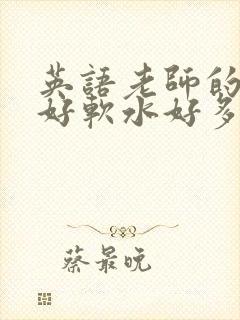 英語老師的
好軟水好多
蔡最晚